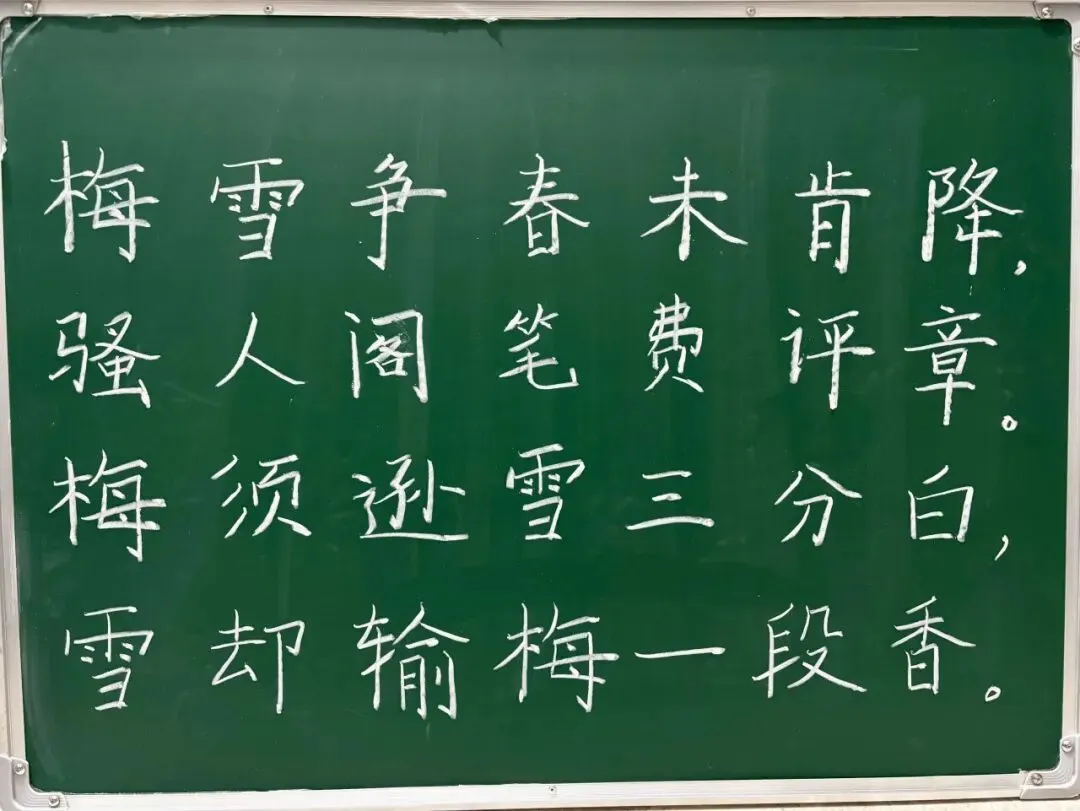 梅雪争春未肯降，
骚人阁笔费评章。
梅须逊雪三分白，
雪却输梅一段香。